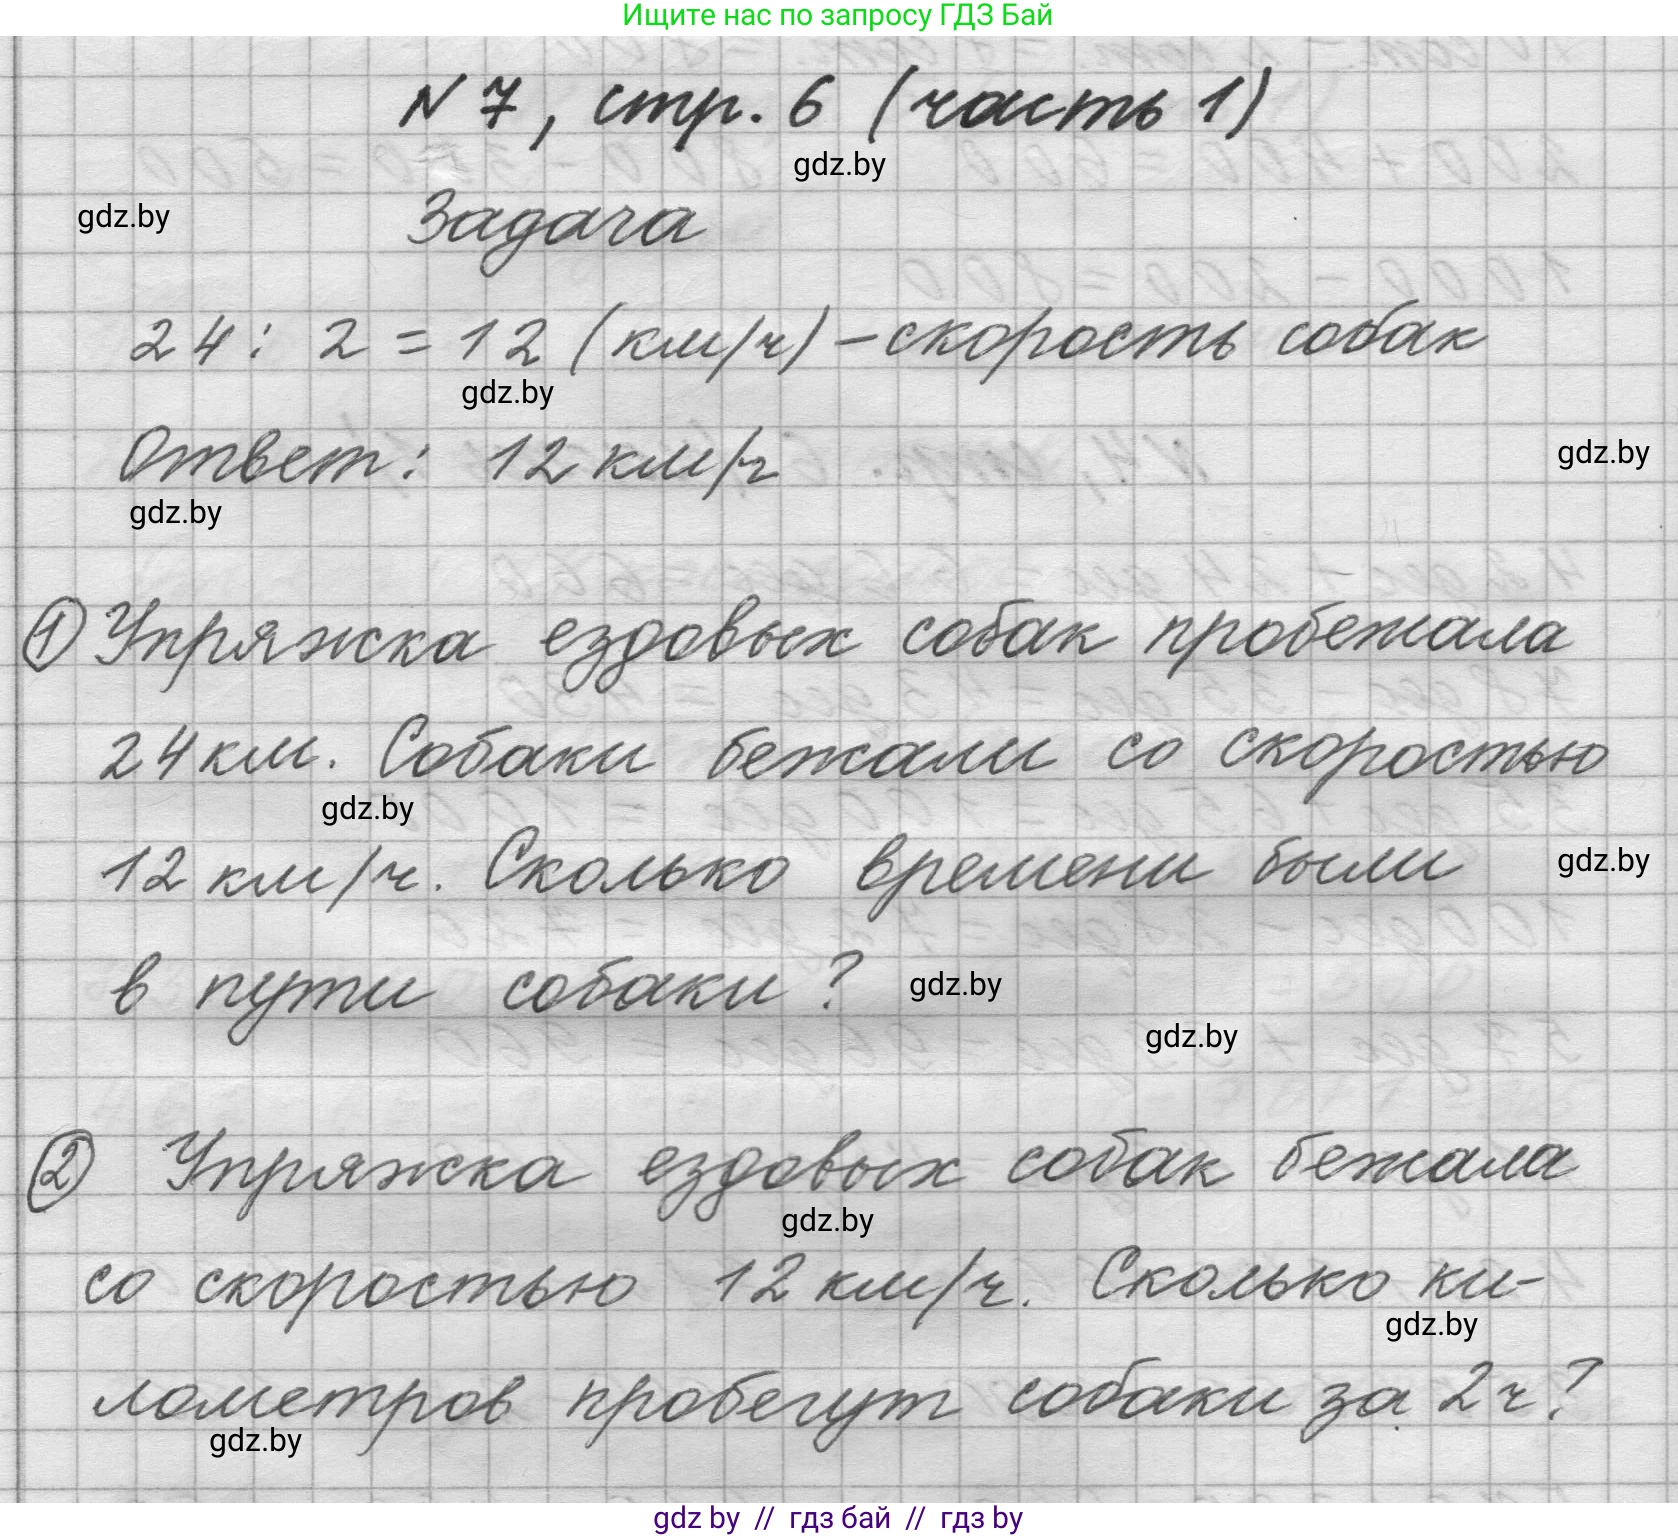 Ищите нас по запросу ГДЗ Бай
N 7, стр. 6 (часть 1)
gdz.by
gdz.by
Задача
24 : 2 = 12 (км/ч) – скорость собак
gdz.by
Ответ: 12 км/ч
gdz.by
gdz.by
① Упряжка ездовых собак пробежала
24 км. Собаки бежали со скоростью
gdz.by
12 км/ч. Сколько времени были
gdz.by
в пути собаки?
gdz.by
gdz.by
② Упряжка ездовых собак бежала
gdz.by
со скоростью 12 км/ч. Сколько ки-
gdz.by
лометров пробегут собаки за 2 ч?
gdz.by
gdz by // гдз бай // гдз by